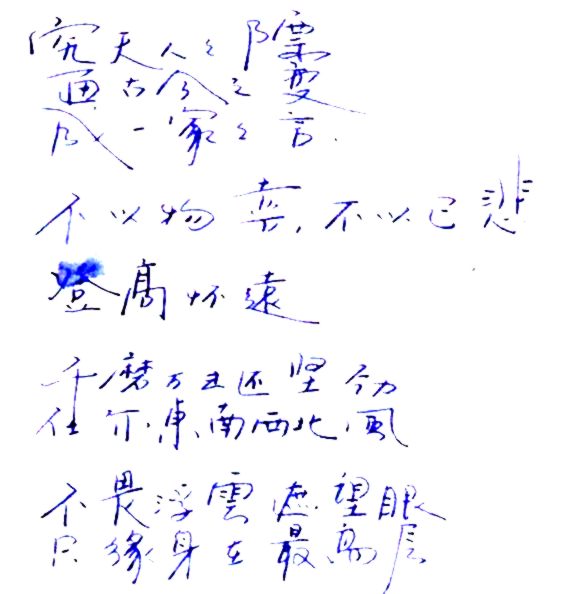 究天人之際
通古今之变
成一家之言.
不以物喜,不以己悲
登高怀遠
千磨万击还坚劲
任尔東南西北風
不畏浮雲遮望眼
只緣身在最高层